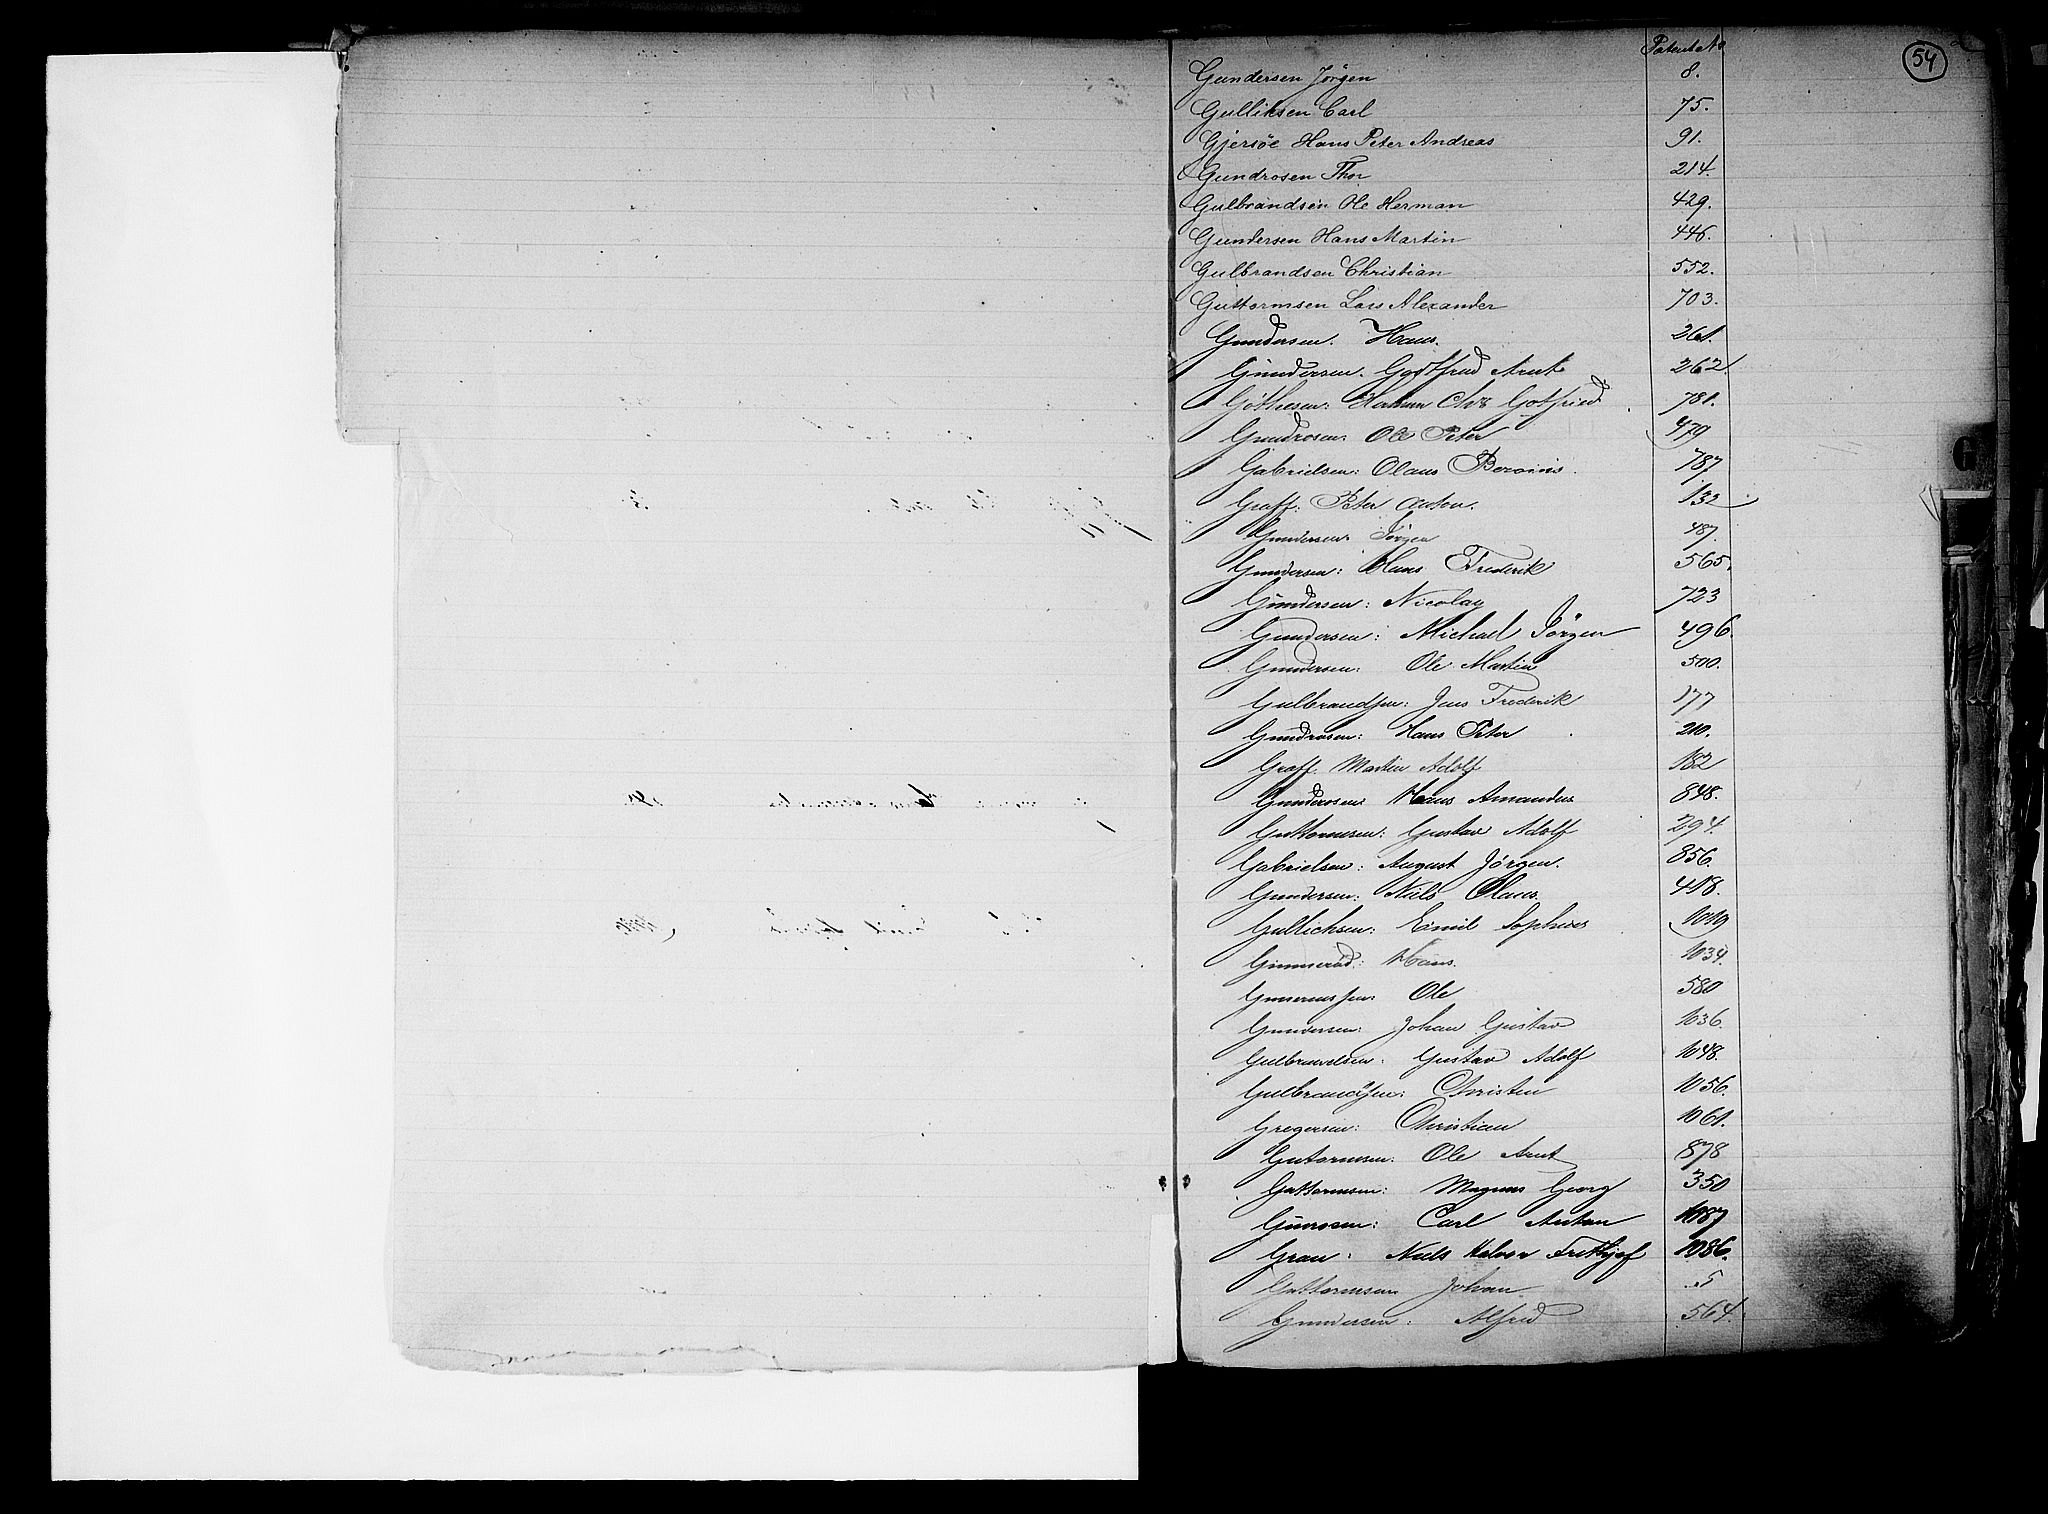 Patent No
54
Gundersen Jörgen 8.
Gulliksen Carl 75.
Gjersöe Hans Peter Andreas 91.
Gundrosen Thor 214.
Gulbrandsen Ole Herman 429.
Gundersen Hans Martin 446.
Gulbrandsen Christian 552.
Guttormsen Lars Alexander 703.
Gundersen. Hans. 261.
Gundersen. Gottfred Arnt 262.
Göthesen: Herman Chr Gotfried. 781.
Gundrosen: Ole Peter 479
Gabrielsen: Olaus 787
Graff: Peter Anton. 132
Gundersen: Jörgen 487.
Gundersen: Hans Frederik 565.
Gundersen: Nicolay 723
Gundersen: Michael Jörgen 496.
Gundersen: Ole Martin 500.
Gulbrandsen: Jens Frederik 177
Gundrosen: Hans Peter 210.
Graff. Martin Adolf 182
Gunderosen: Hans Amandus 848.
Guttormsen: Gustav Adolf 294.
Gabrielsen: August Jörgen. 856.
Gundersen: Niels Olaus. 418.
Gullichsen: Emil Sophus 1019
Gimmerød: Hans. 1034.
Ole 580
Gundersen: Johan Gustav 1036.
Gulbrandsen: Gustav Adolf 1048.
Gulbrandsen: Christen 1056.
Gregersen: Christian 1061.
Gutormsen: Ole Arnt 878
Guttormsen: Magnus Georg 350
Gunrosen: Carl Anton 1087
Grau: Niels Halvor Frithjof 1086.
Guttormsen Johan 5
Gundersen: Alfred 564.
G